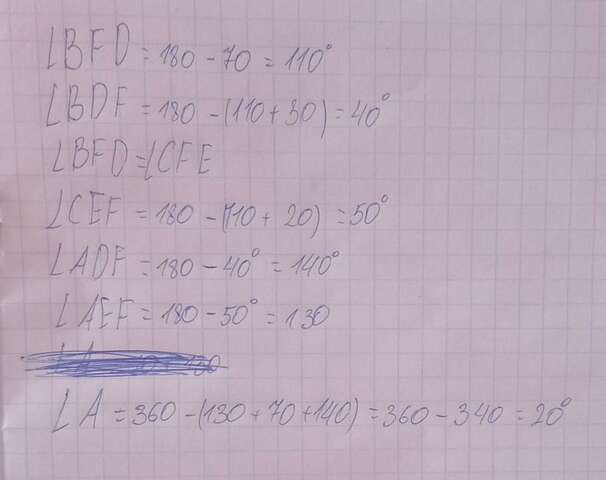 ∠BFD = 180 - 70 = 110°
∠BDF = 180 - (110 + 30) = 40°
∠BFD = ∠CFE
∠CEF = 180 - (110 + 20) = 50°
∠ADF = 180 - 40° = 140°
∠AEF = 180 - 50° = 130
∠A = 360 - (130 + 70 + 140) = 360 - 340 = 20°